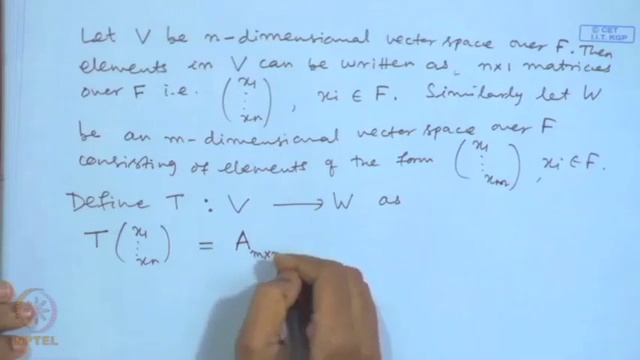 © CET
I.I.T. KGP
Let V be n-dimensional vector space over F. Then
elements in V can be written as, n×1 matrices
over F i.e. (x1 ⋮ xn), xi ∈ F. Similarly let W
be an m-dimensional vector space over F
consisting of elements of the form (x1 ⋮ xm), xi ∈ F.
Define T : V ⟶ W as
T (x1 ⋮ xn) = A m×n
NPTEL